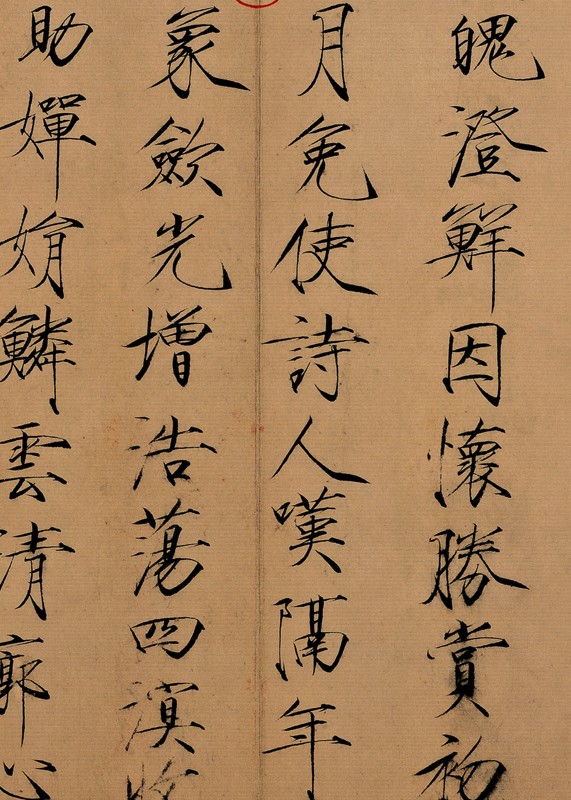 魄澄鮮因懷勝賞初
月免使詩人嘆隔年
象歛光增浩蕩四溟
助嬋娟鱗雲清廓心